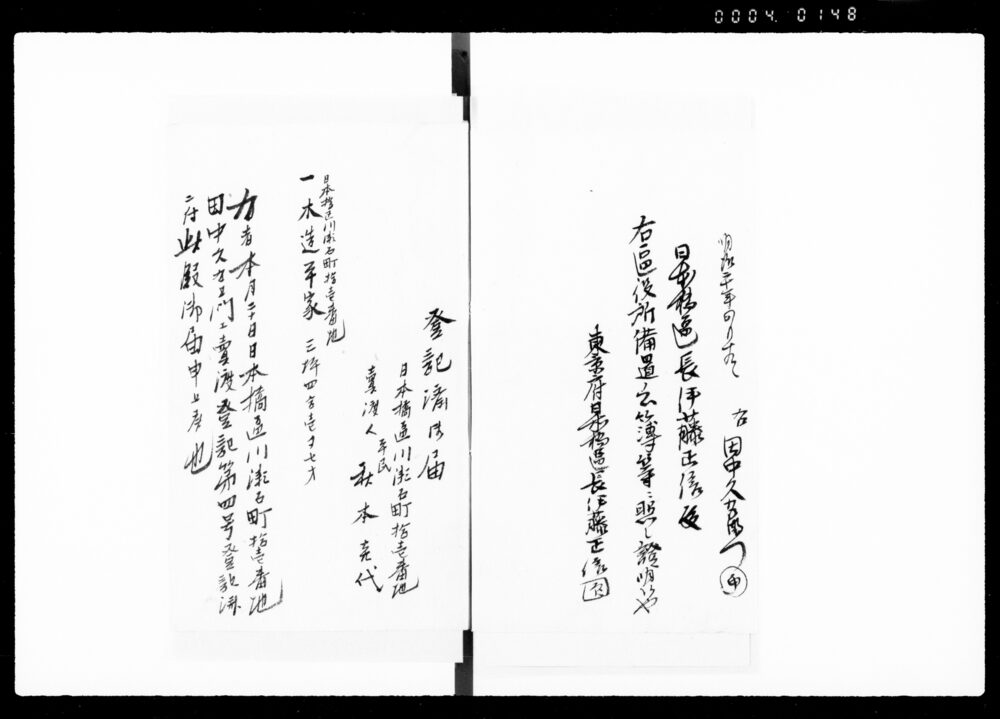 0004 0148
明治二十年四月十九日
右 田中久右衛門 ㊞
日本橋區長伊藤正信殿
右區役所備置公簿等ニ照シ證明候也
東京府日本橋區長伊藤正信 印
登記濟御届
日本橋區川瀬石町拾壱番地
平民
賣渡人 秋本 代
日本橋區川瀬石町拾壱番地
一木造平家 三坪四合壱勺七才
右者本月二十日日本橋區川瀬石町拾壱番地
田中久右衛門エ賣渡登記第四号登記済
ニ付此段御届申上候也